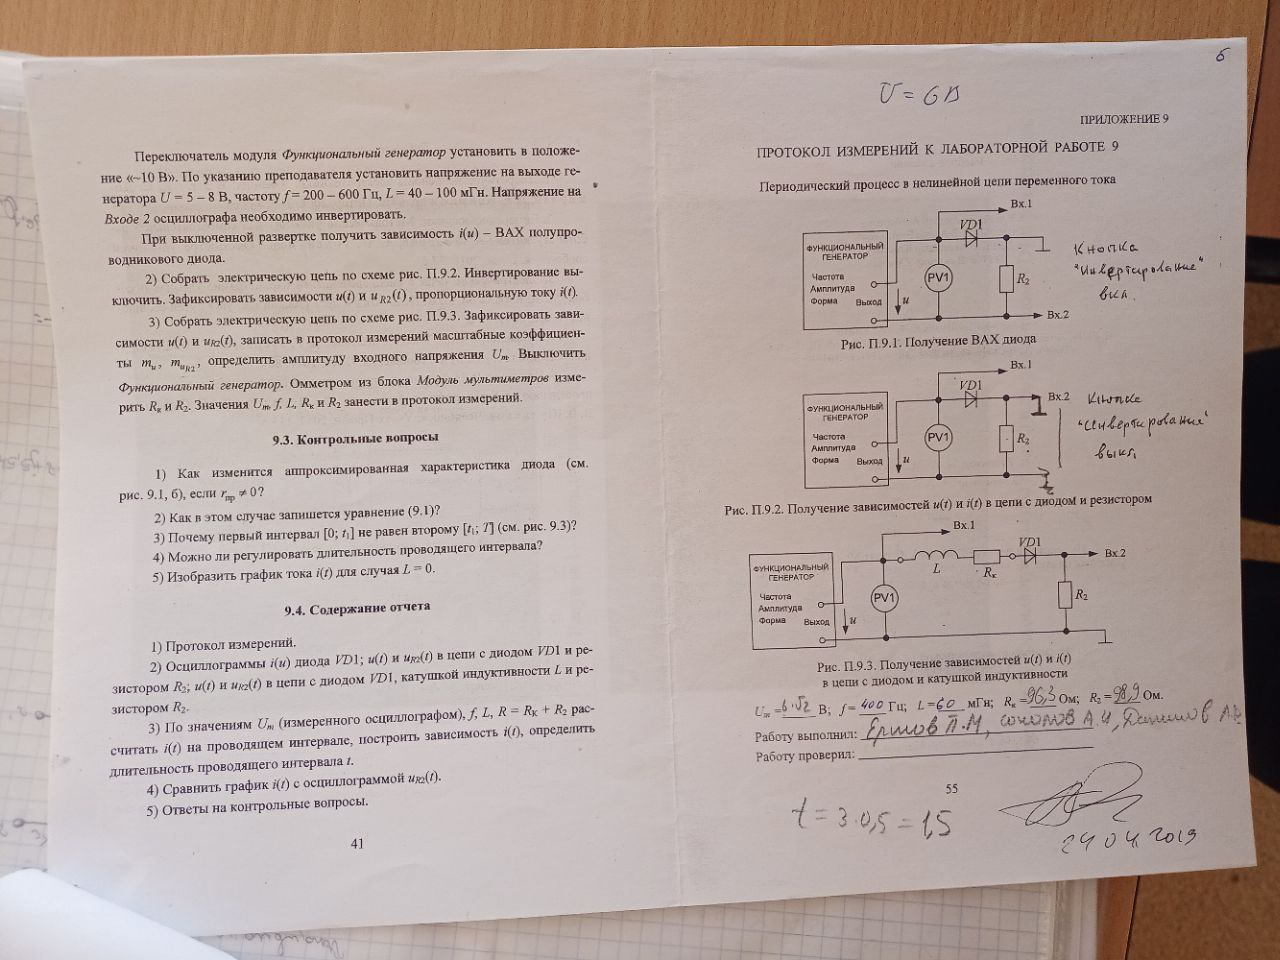 Переключатель модуля Функциональный генератор установить в положе-
ние «~10 В». По указанию преподавателя установить напряжение на выходе ге-
нератора U = 5 – 8 В, частоту f = 200 – 600 Гц, L = 40 – 100 мГн. Напряжение на
Входе 2 осциллографа необходимо инвертировать.
При выключенной развертке получить зависимость i(u) – ВАХ полупро-
водникового диода.
2) Собрать электрическую цепь по схеме рис. П.9.2. Инвертирование вы-
ключить. Зафиксировать зависимости u(t) и u R2(t), пропорциональную току i(t).
3) Собрать электрическую цепь по схеме рис. П.9.3. Зафиксировать зави-
симости u(t) и uR2(t), записать в протокол измерений масштабные коэффициен-
ты mu, muR2, определить амплитуду входного напряжения Um. Выключить
Функциональный генератор. Омметром из блока Модуль мультиметров изме-
рить Rк и R2. Значения Um, f, L, Rк и R2 занести в протокол измерений.
9.3. Контрольные вопросы
1) Как изменится аппроксимированная характеристика диода (см.
рис. 9.1, б), если rпр ≠ 0?
2) Как в этом случае запишется уравнение (9.1)?
3) Почему первый интервал [0; t1] не равен второму [t1; T] (см. рис. 9.3)?
4) Можно ли регулировать длительность проводящего интервала?
5) Изобразить график тока i(t) для случая L = 0.
9.4. Содержание отчета
1) Протокол измерений.
2) Осциллограммы i(u) диода VD1; u(t) и uR2(t) в цепи с диодом VD1 и ре-
зистором R2; u(t) и uR2(t) в цепи с диодом VD1, катушкой индуктивности L и ре-
зистором R2.
3) По значениям Um (измеренного осциллографом), f, L, R = RК + R2 рас-
считать i(t) на проводящем интервале, построить зависимость i(t), определить
длительность проводящего интервала t.
4) Сравнить график i(t) с осциллограммой uR2(t).
5) Ответы на контрольные вопросы.
41
U = 6В
ПРИЛОЖЕНИЕ 9
ПРОТОКОЛ ИЗМЕРЕНИЙ К ЛАБОРАТОРНОЙ РАБОТЕ 9
Периодический процесс в нелинейной цепи переменного тока
Вх.1
VD1
ФУНКЦИОНАЛЬНЫЙ
ГЕНЕРАТОР
Частота
Амплитуда
Форма Выход
u
PV1
R2
Вх.2
Кнопка
"Инвертирование"
вкл.
Рис. П.9.1. Получение ВАХ диода
Вх.1
VD1
Вх.2
ФУНКЦИОНАЛЬНЫЙ
ГЕНЕРАТОР
Частота
Амплитуда
Форма Выход
u
PV1
R2
Кнопка
"Инвертирование"
выкл
Рис. П.9.2. Получение зависимостей u(t) и i(t) в цепи с диодом и резистором
Вх.1
VD1
Вх.2
L
Rк
ФУНКЦИОНАЛЬНЫЙ
ГЕНЕРАТОР
Частота
Амплитуда
Форма Выход
u
PV1
R2
Рис. П.9.3. Получение зависимостей u(t) и i(t)
в цепи с диодом и катушкой индуктивности
Um = 6·√2 В; f = 400 Гц; L = 60 мГн; Rк = 96,3 Ом; R2 = 98,9 Ом.
Работу выполнил: Ершов П.М, Соколов А.И, Данилов
Работу проверил:
55
t = 3·0,5 = 1,5
24 04 2019